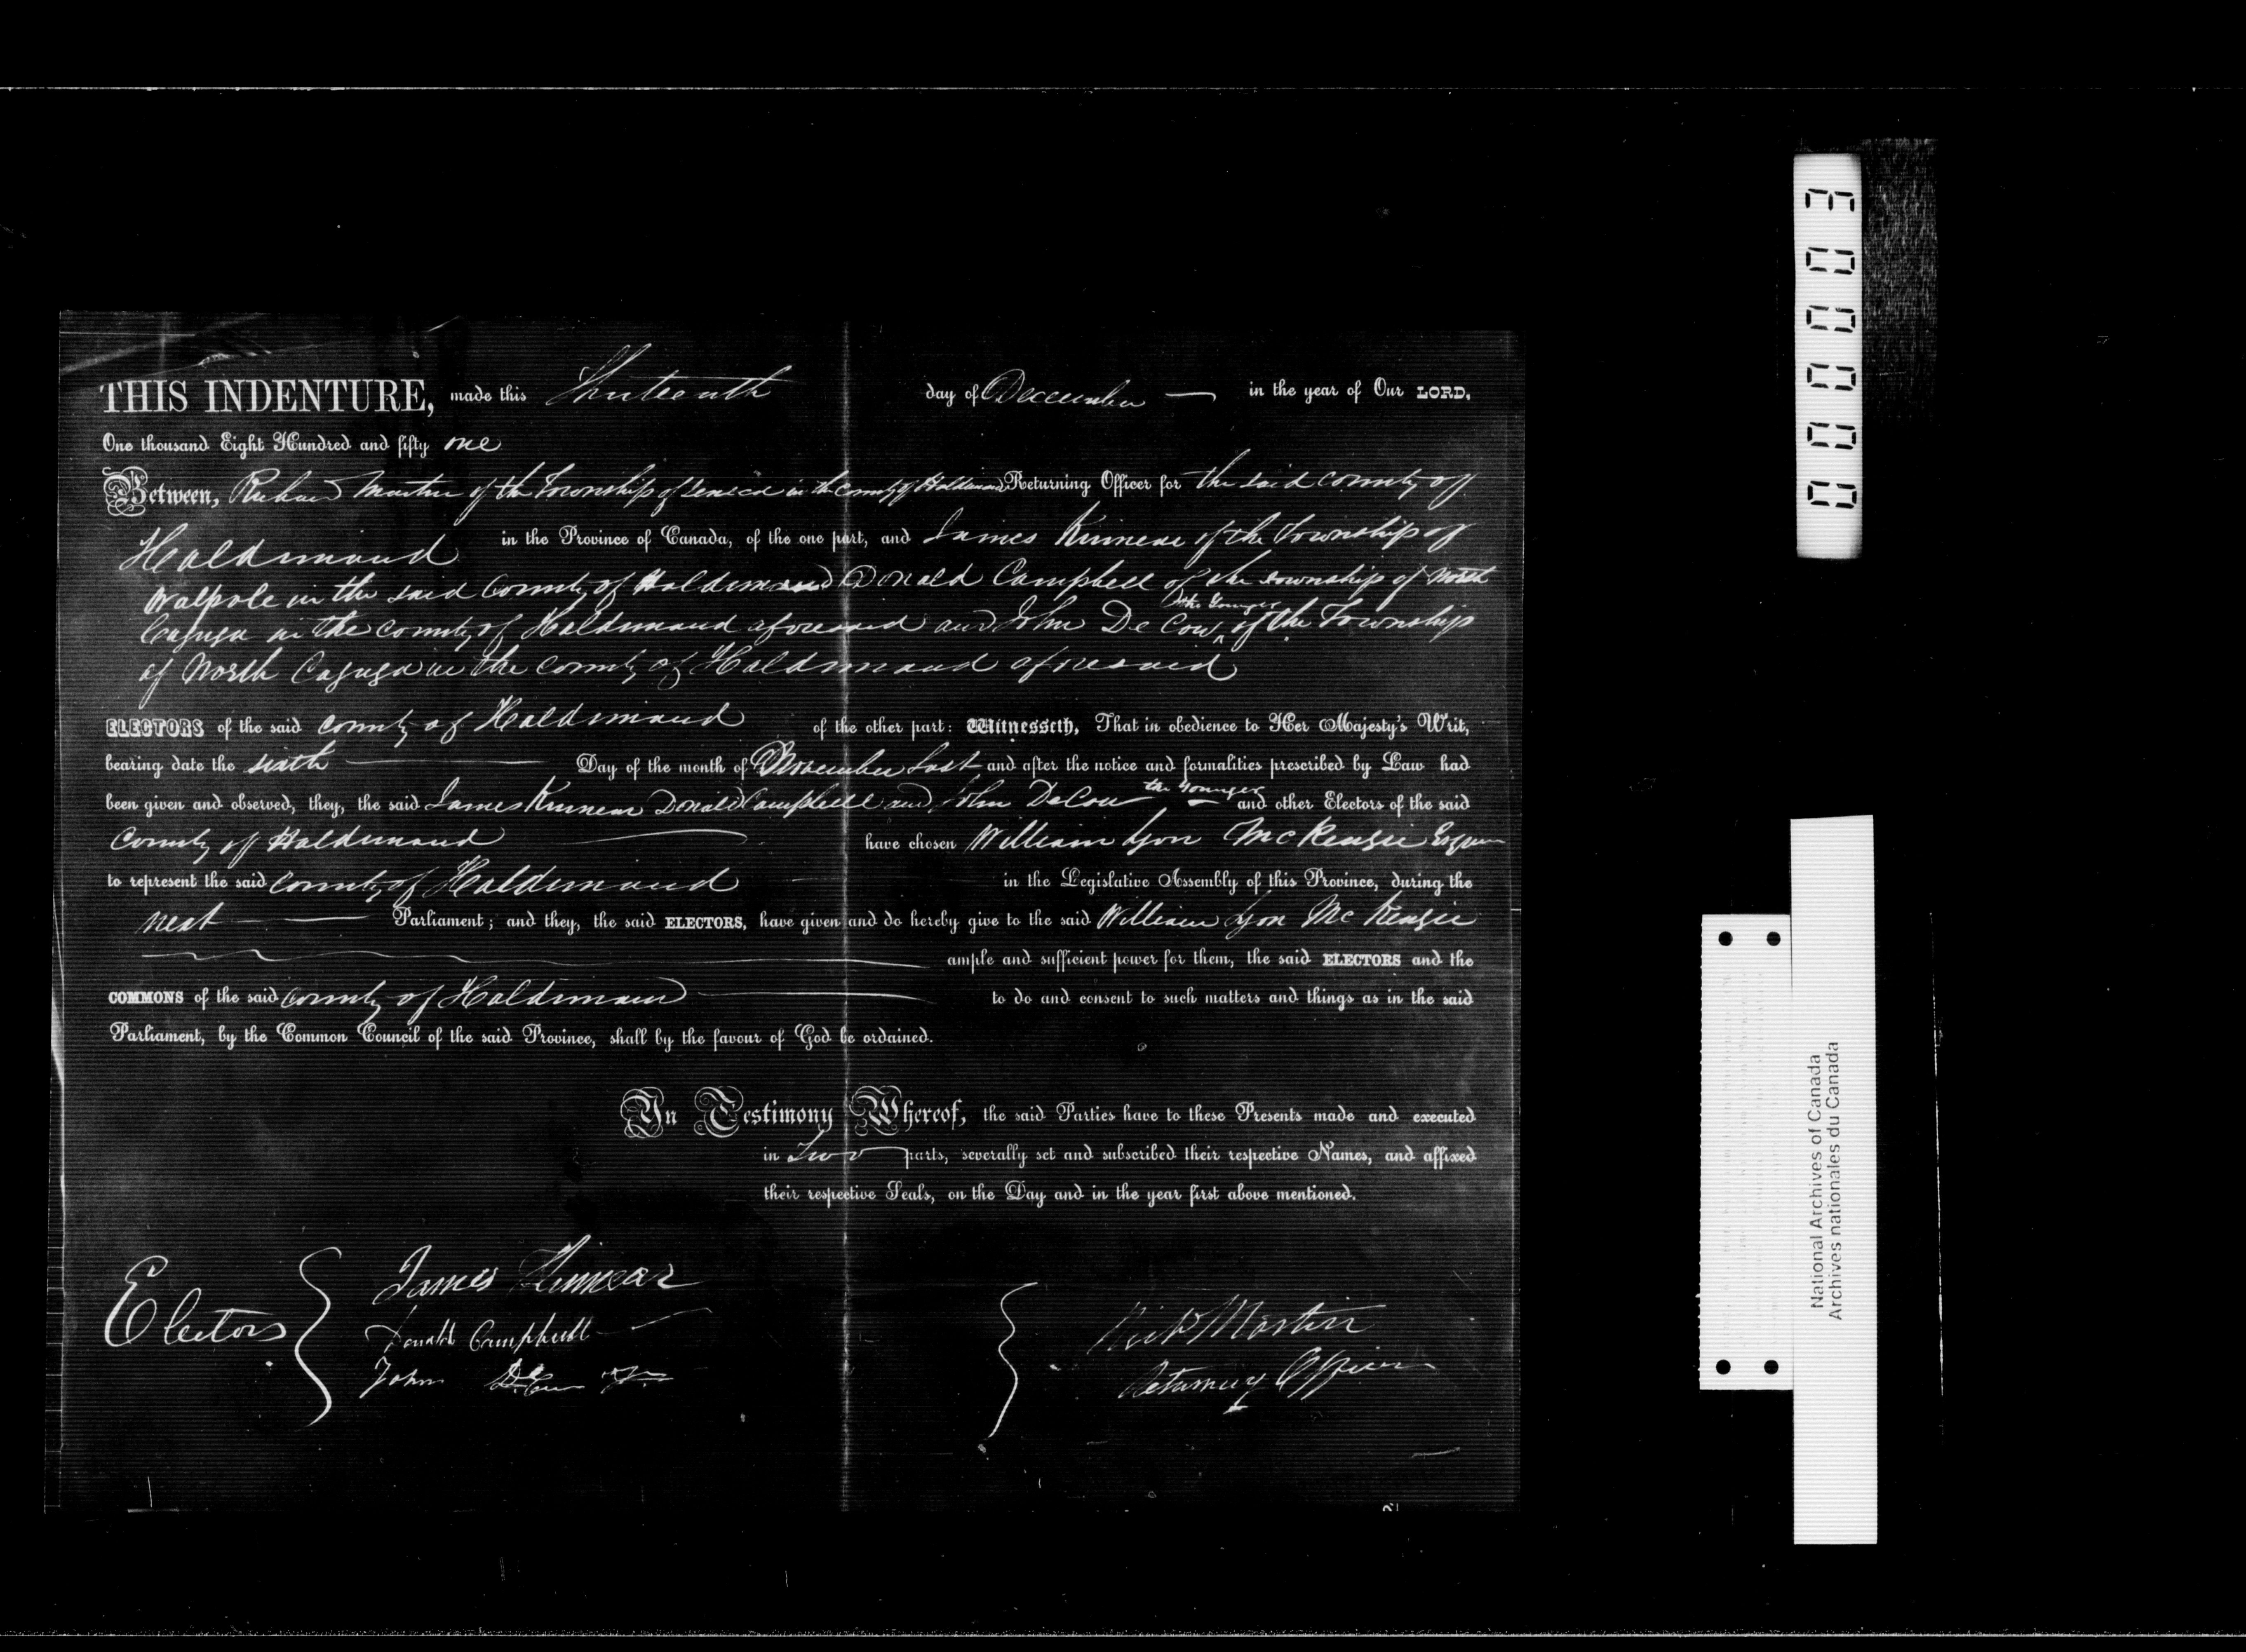 THIS INDENTURE, made this Thirteenth day of December in the year of Our LORD,
One thousand Eight Hundred and fifty one
Between, Richard Martin of the Township of Seneca in the County of Haldimand Returning Officer for the said County of
Haldimand in the Province of Canada, of the one part, and James Kinnear of the Township of
Walpole in the said County of Haldimand Donald Campbell of the township of North
Cayuga in the County of Haldimand aforesaid and John De Cow the Younger of the Township
of North Cayuga in the County of Haldimand aforesaid
ELECTORS of the said County of Haldimand of the other part: Witnesseth, That in obedience to Her Majesty's Writ,
bearing date the sixth Day of the month of November last and after the notice and formalities prescribed by Law had
been given and observed, they, the said James Kinnear Donald Campbell and John DeCow the Younger and other Electors of the said
County of Haldimand have chosen William Lyon McKenzie Esquire
to represent the said County of Haldimand in the Legislative Assembly of this Province, during the
next Parliament; and they, the said ELECTORS, have given and do hereby give to the said William Lyon McKenzie
ample and sufficient power for them, the said ELECTORS and the
COMMONS of the said County of Haldimand to do and consent to such matters and things as in the said
Parliament, by the Common Council of the said Province, shall by the favour of God be ordained.
In Testimony Whereof, the said Parties have to these Presents made and executed
in Two parts, severally set and subscribed their respective Names, and affixed
their respective Seals, on the Day and in the year first above mentioned.
Electors
James Kinnear
Donald Campbell
John De Cow Jr
Richd Martin
Returning Officer
000003
National Archives of Canada
Archives nationales du Canada